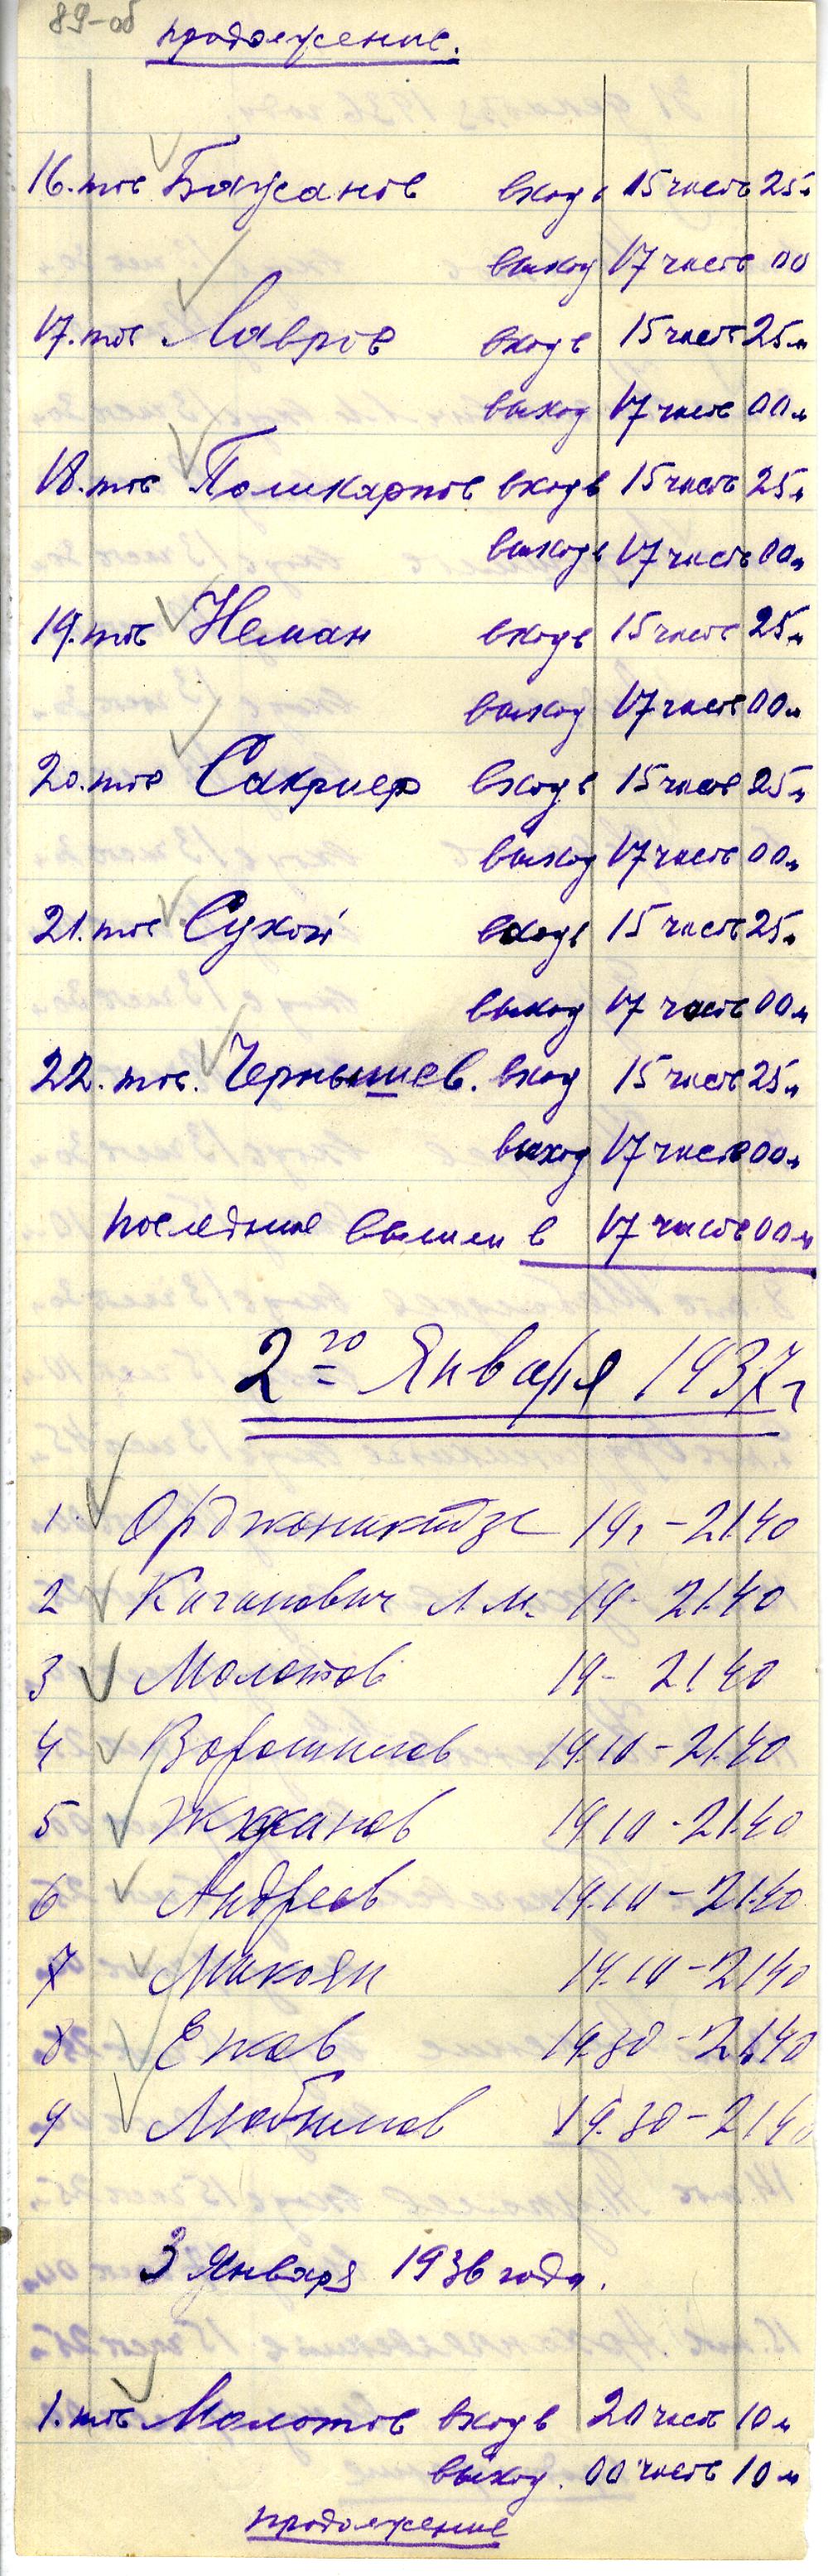 89-об
продолжение.
16. тов Бажанов вход в 15 часов 25 м
выход 17 часов 00
17. тов Лавров вход в 15 часов 25 м
выход 17 часов 00 м
18. тов Поликарпов вход в 15 часов 25 м
выход в 17 часов 00 м
19. тов Неман вход в 15 часов 25 м
выход 17 часов 00 м
20. тов Сакриер вход в 15 часов 25 м
выход 17 часов 00 м
21. тов Сухой вход в 15 часов 25 м
выход 17 часов 00 м
22. тов. Чернышев. вход 15 часов 25 м
выход 17 часов 00 м
последние вышли в 17 часов 00 м
2го Января 1937 г
1 Орджоникидзе 19, - 21.40
2 Каганович Л.М. 19 - 21.40
3 Молотов 19 - 21.40
4 Ворошилов 19.10 - 21.40
5 Жданов 19.10 - 21.40
6 Андреев 19.10 - 21.40
7 Микоян 19.10 - 21.40
8 Ежов 19.30 - 21.40
9 Любимов 19.30 - 21.40
3 Января 1936 года.
1. тов Молотов вход в 20 часов 10 м
выход. 00 часов 10 м
продолжение